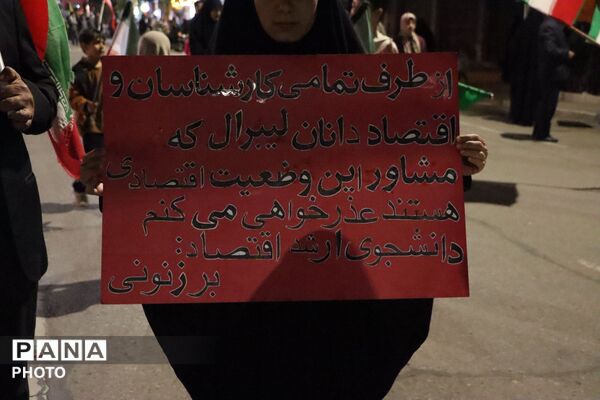 از طرف تمامی کارشناسان و
اقتصاد دانان لیبرال که
مشاور این وضعیت اقتصادی
هستند عذرخواهی می کنم
دانشجوی ارشد اقتصاد:
برزنونی
PANA
PHOTO